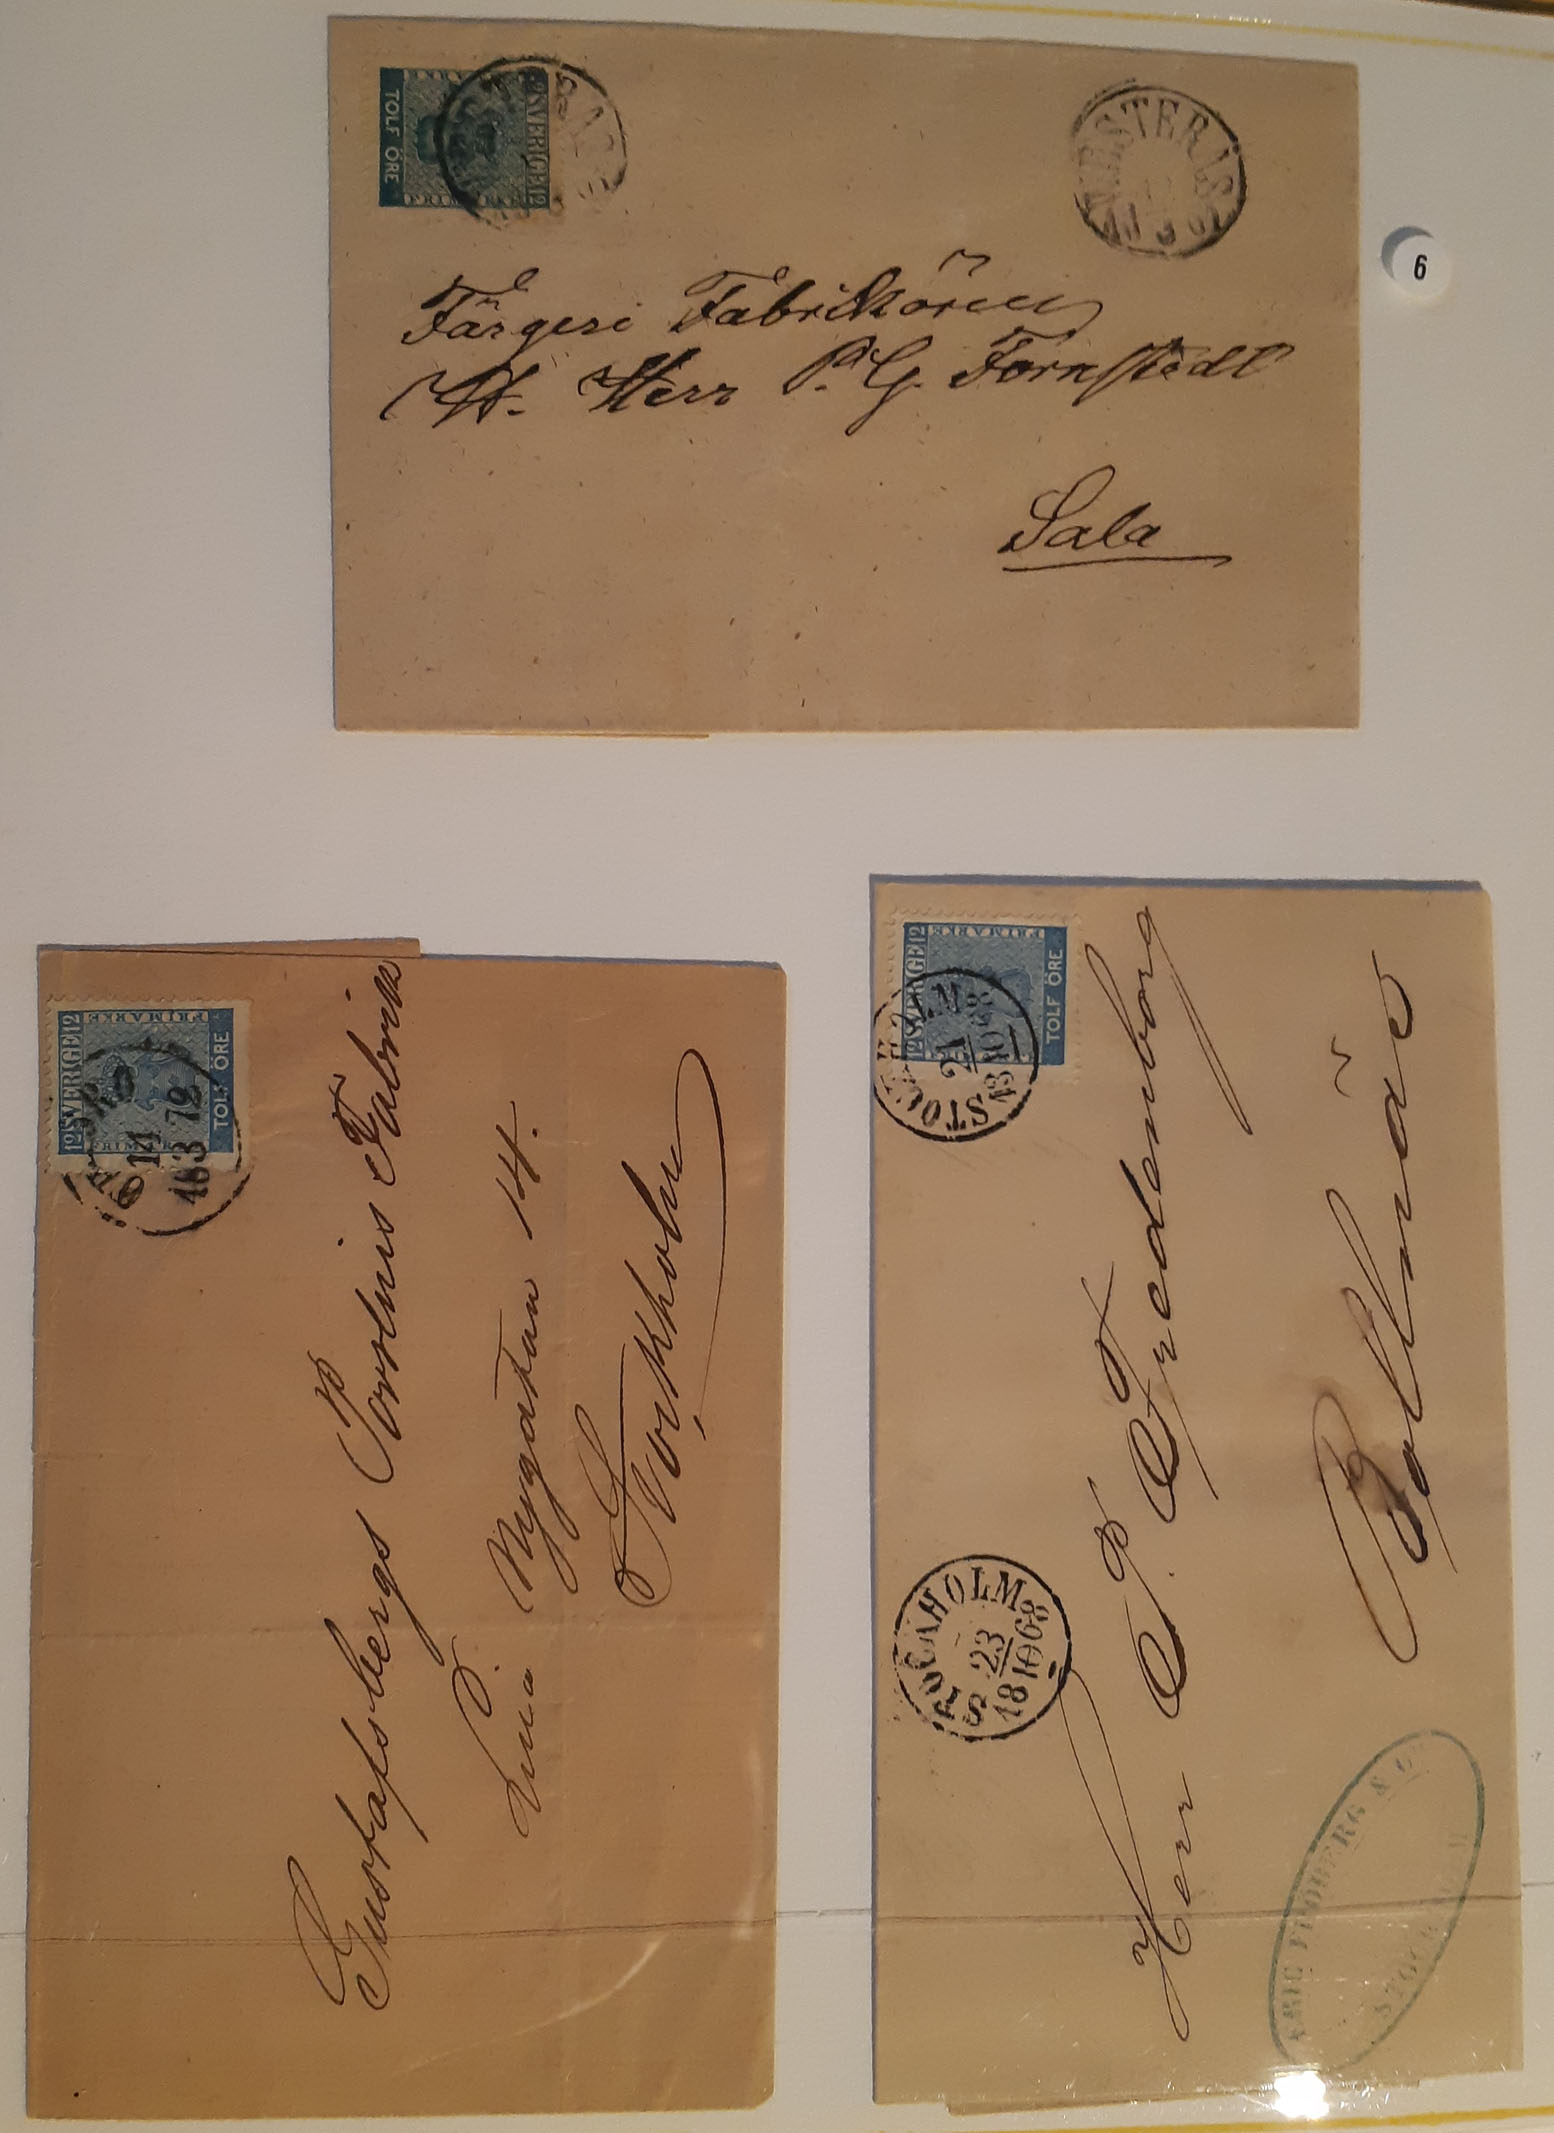 TOLF ÖRE
12 SVERIGE 12
FRIMÄRKE
WESTERÅS
6
Färgeri Fabrikören
W. Herr P. G. Fornstedt
Sala
12 SVERIGE 12
FRIMÄRKE
FRIMÄRKE
TOLF ÖRE
14
18 3 72
Gustafsbergs Porslins Fabrik
Lilla Nygatan 14.
Stockholm
12 SVERIGE 12
FRIMÄRKE
TOLF ÖRE
STOCKHOLM
21
18 10 68
STOCKHOLM
23
18 10 68
Herr C. P. Fredenborg
ERIC FRÖBERG & Co
STOCKHOLM